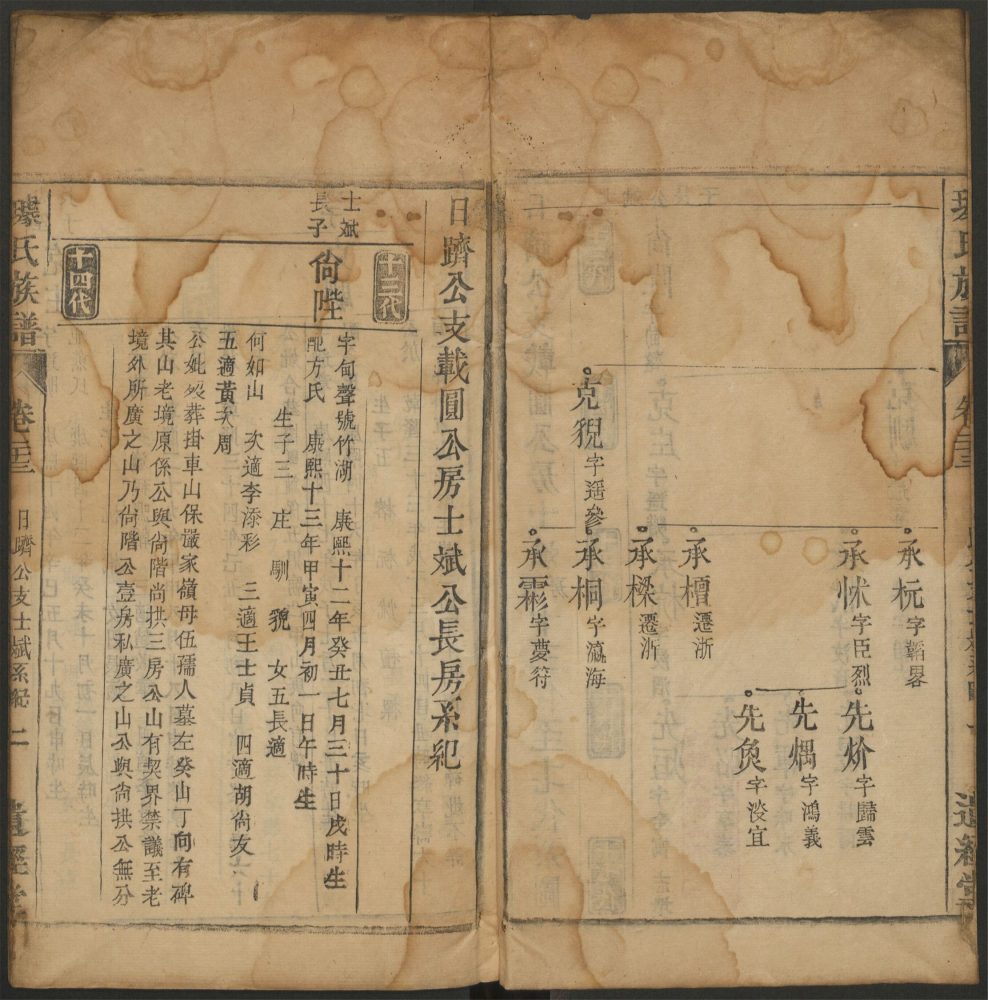 克猊字遥參
承杬字韜畧
承怵字臣烈
承檀遷浙
承樑遷浙
承桐字瀛海
承霦字夢符
先炌字歸雲
先燤字鴻義
先奐字淡宜
日躋公支載圓公房士斌公長房系紀
十三代
士斌
長子
尙陛
字甸聲號竹湖 康熙十二年癸丑七月三十日戌時生
配方氏 康熙十三年甲寅四月初一日午時生
生子三 庄 馴 貌 女五長適
何如山 次適李添彩 三適王士貞 四適胡尙友
五適黃次周
十四代
公妣葬掛車山保嚴家嶺母伍孺人墓左癸山丁向有碑
其山老境原係公與尙階尚拱三房公山有契界禁議至老
境外所廣之山乃尙階公壹房私廣之山公與尙拱公無分
氏族譜
日躋公支士斌系紀
二